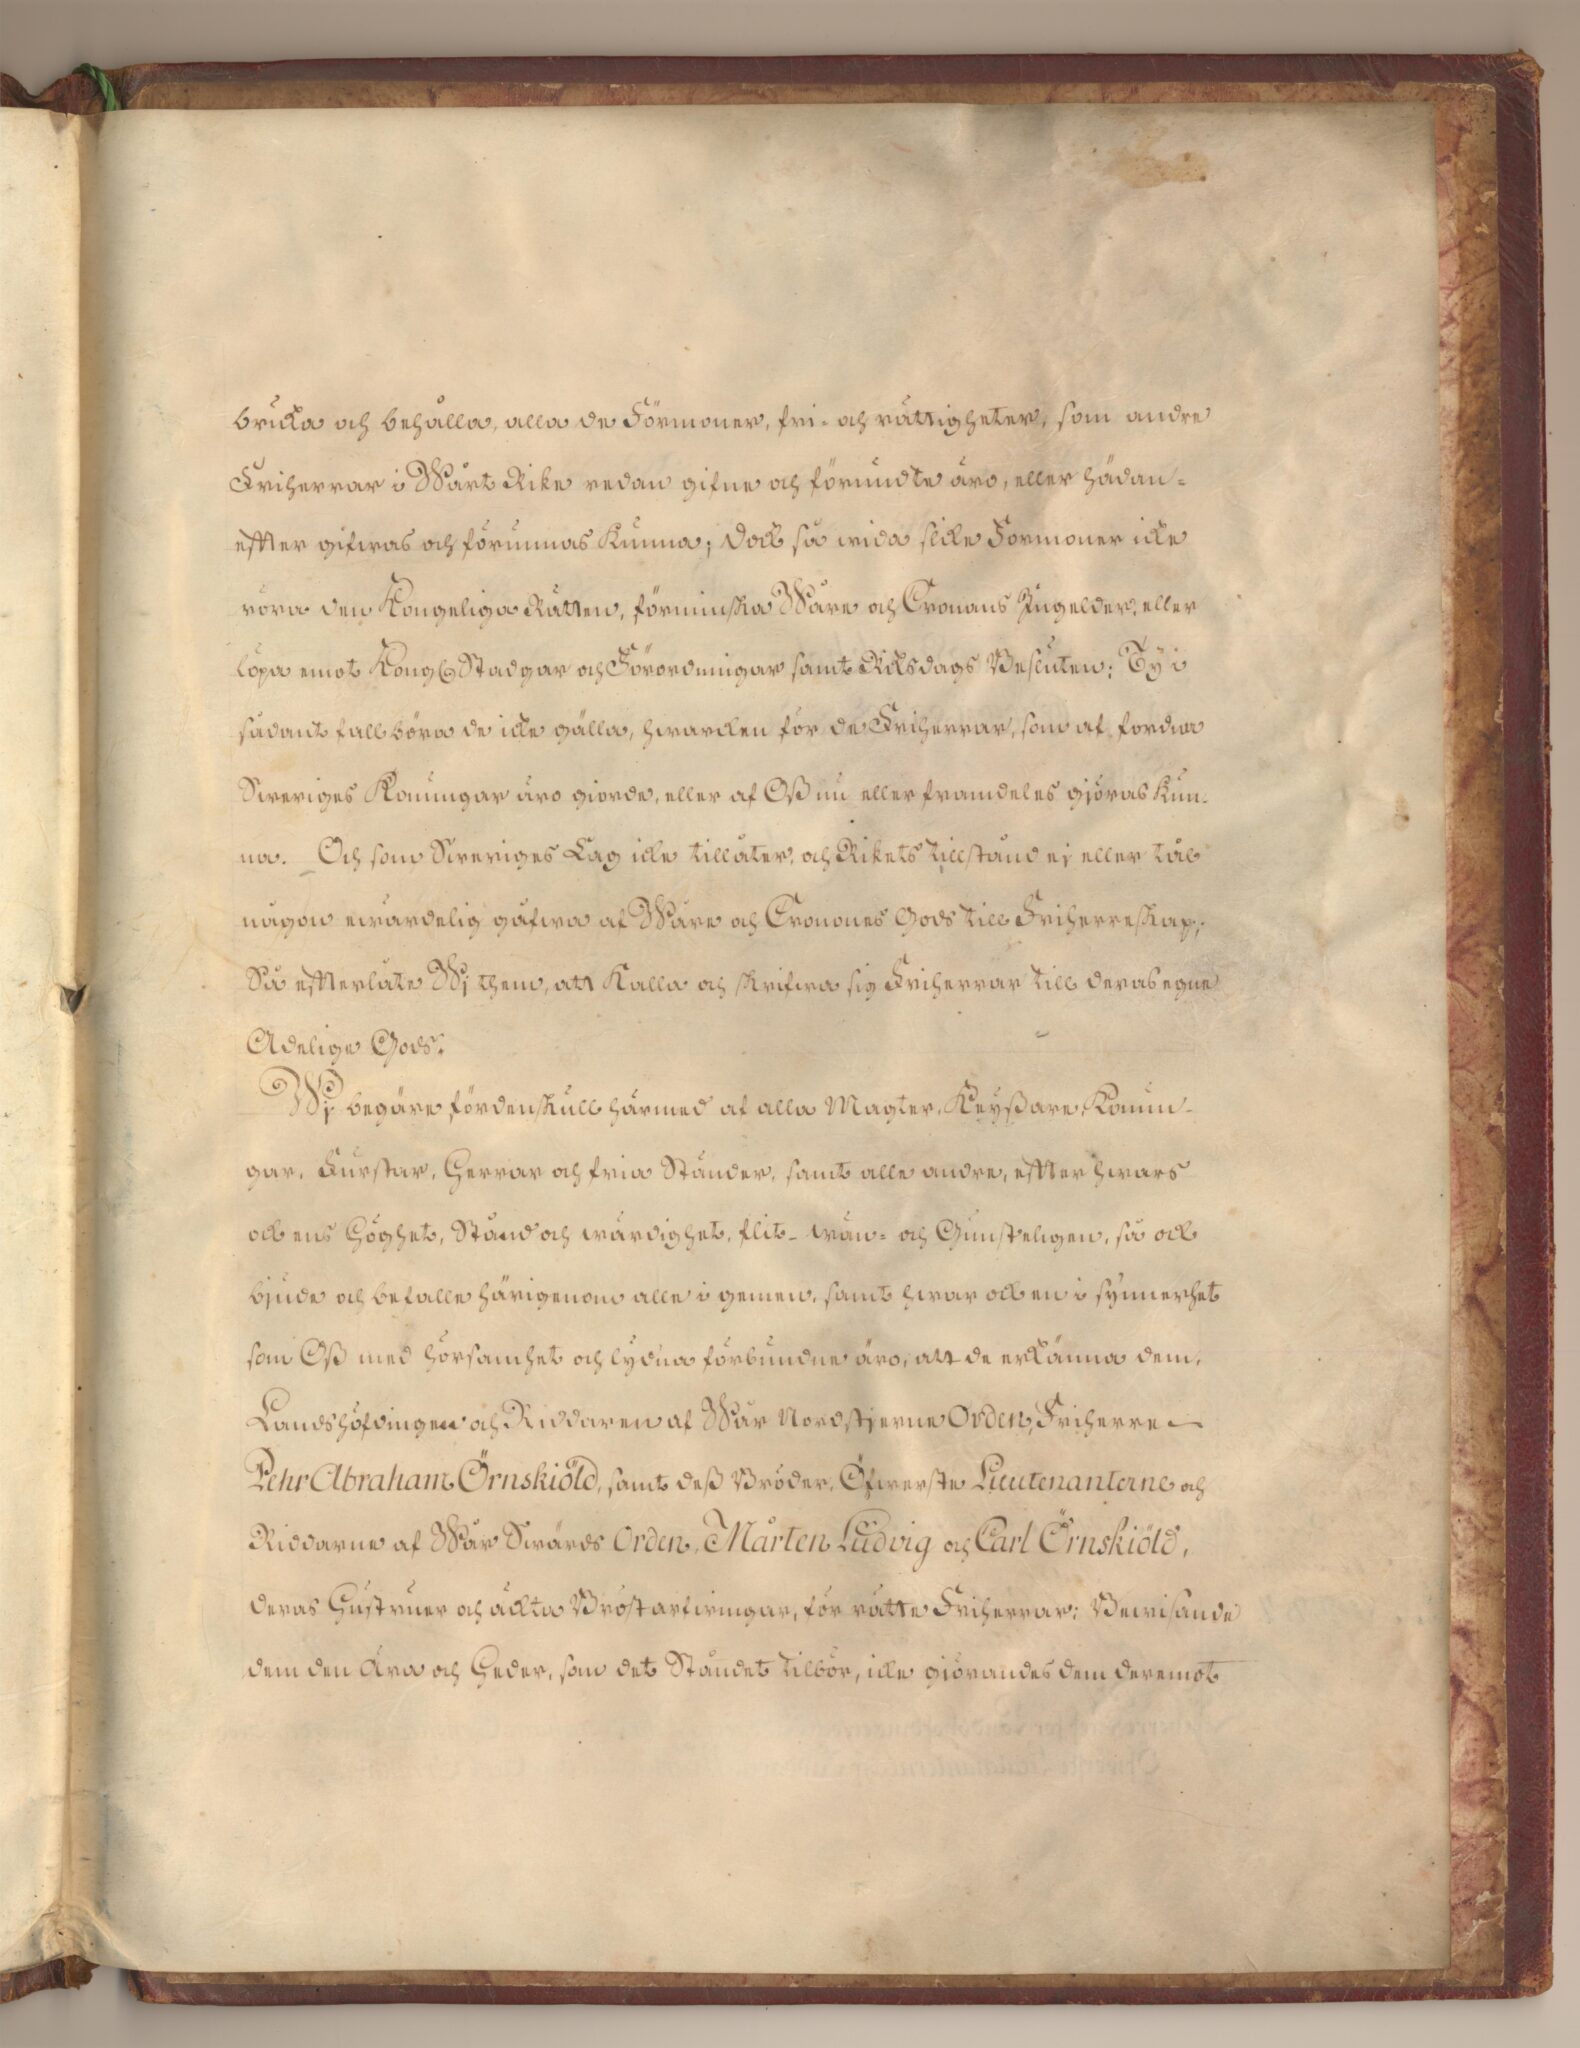 bruka och behålla, alla de Förmoner, fri- och rättigheter, som andre
Friherrar i Wårt Rike redan gifne och förundte äro, eller hädan-
effter gifwas och förunnas kunna; Dock så wida slike Förmoner icke
röra den Kongeliga Rätten, förminska Wåre och Cronans Ingelder, eller
löpa emot Kongl. Stadgar och Förordningar samt Riksdags Besluten; Ty i
sådant fall böra de icke gälla, hwarcken för de Friherrar, som af fordna
Sweriges Konungar äro giorde, eller af Oß nu eller framdeles giöras kun-
na. Och som Sweriges Lag icke tillåter, och Rikets tillstånd ej eller tål
någon ewärdelig gåfwa af Wåre och Cronones Gods till Friherreskap;
Så effterlåte Wj them, att kalla och skrifwa sig Friherrar till deras egne
Adelige Gods.
Wj begäre fördenskull härmed af alla Magter, Keyßare, Konun-
gar, Furstar, Herrar och fria Ständer, samt alle andre, effter hwars
ock ens Höghet, Stånd och wärdighet, flit- wän- och Gunsteligen, så ock
bjude och befalle härigenom alle i gemen, samt hwar ock en i synnerhet
som Oß med hörsamhet och lydna förbundne äro, att de erkänna dem,
Landshöfdingen och Riddaren af Wår Nordstjerne Orden, Friherre
Pehr Abraham Örnskiöld, samt deß Bröder, Öfwerste Lieutenanterne och
Riddarne af Wår Swärds Orden, Mårten Ludvig och Carl Örnskiöld,
deras Hustruer och äckta Bröstarfwingar, för rätte Friherrar; Bewisande
dem den Ära och Heder, som det Ståndet tilbör, icke giörandes dem deremot